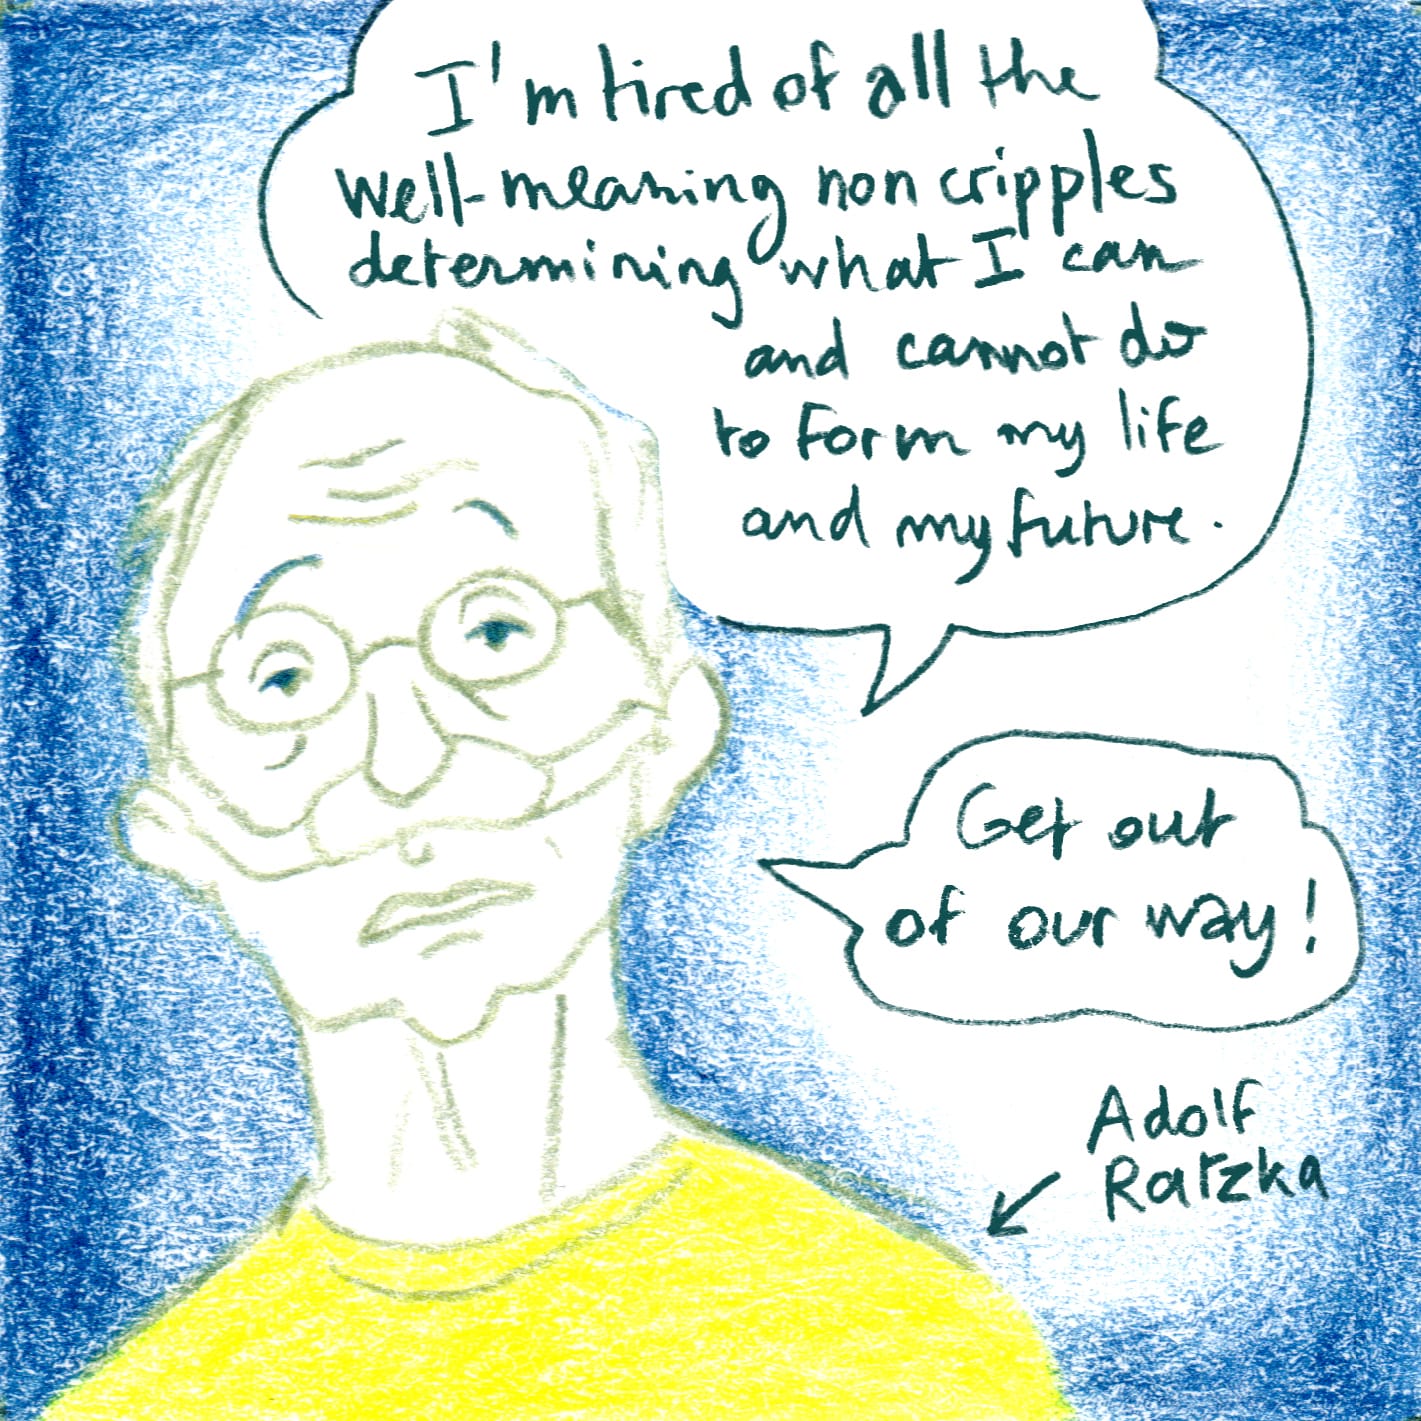 I'm tired of all the
well-meaning non cripples
determining what I can
and cannot do
to form my life
and my future.
Get out
of our way!
Adolf
Ratzka